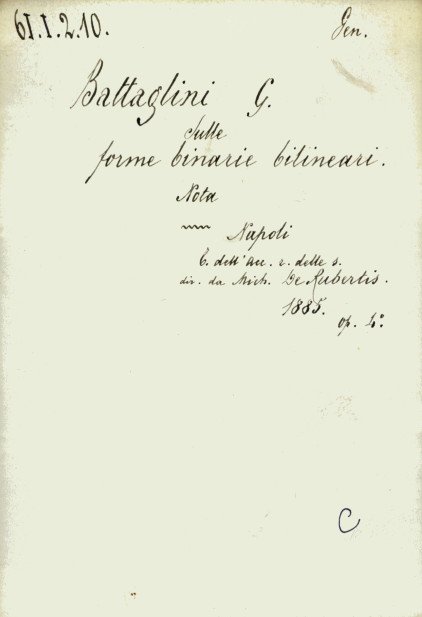 61.I.2.10. Gen.
Battaglini G.
Sulle
forme binarie bilineari.
Nota
Napoli
t. dell'au. r. delle s.
dir. da Mich. De Rubertis.
1885.
op. 4°.
C